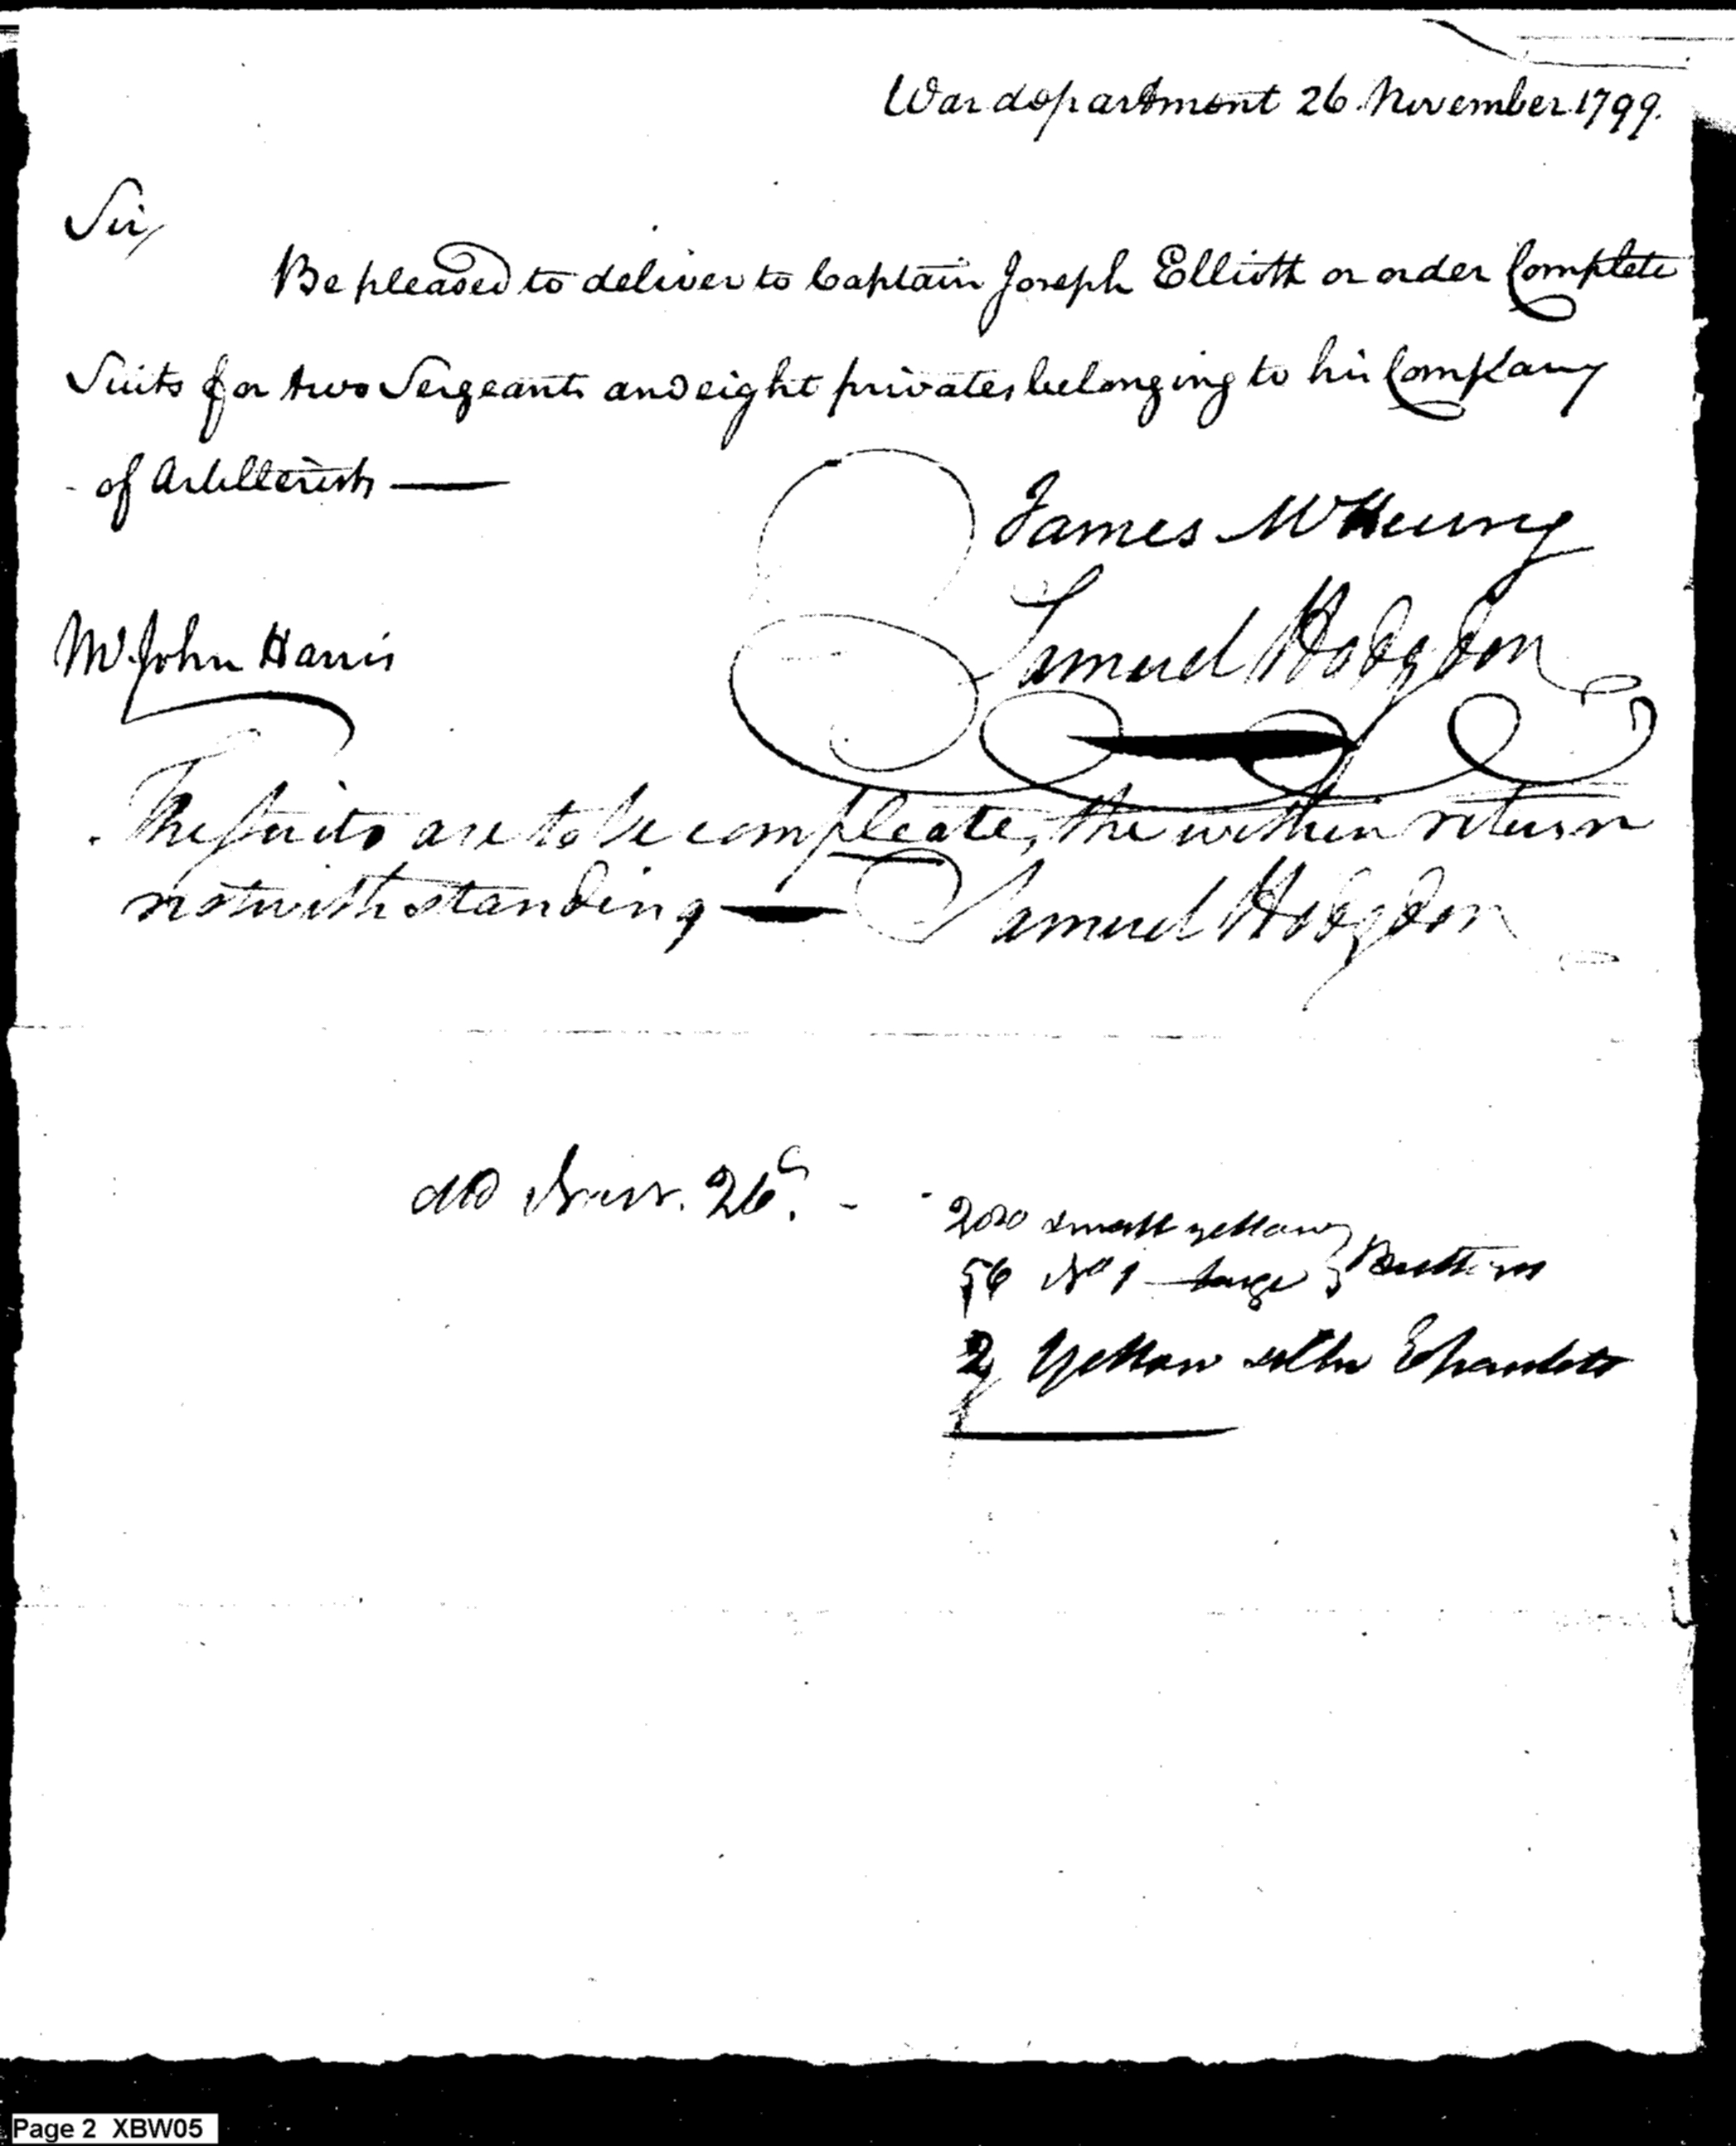 War department 26 November 1799.
Sir,
Be pleased to deliver to Captain Joseph Elliott or order Complete
Suits for two Sergeants and eight privates belonging to his Company
of Artillerists —
James McHenry
Samuel Hodgdon
Mr John Harris
The suits are to be compleate, the within return
notwithstanding — Samuel Hodgdon
26.
200 small yellow
56 No 1 large } Buttons
2 Yellow Epauletts
Page 2 XBW05